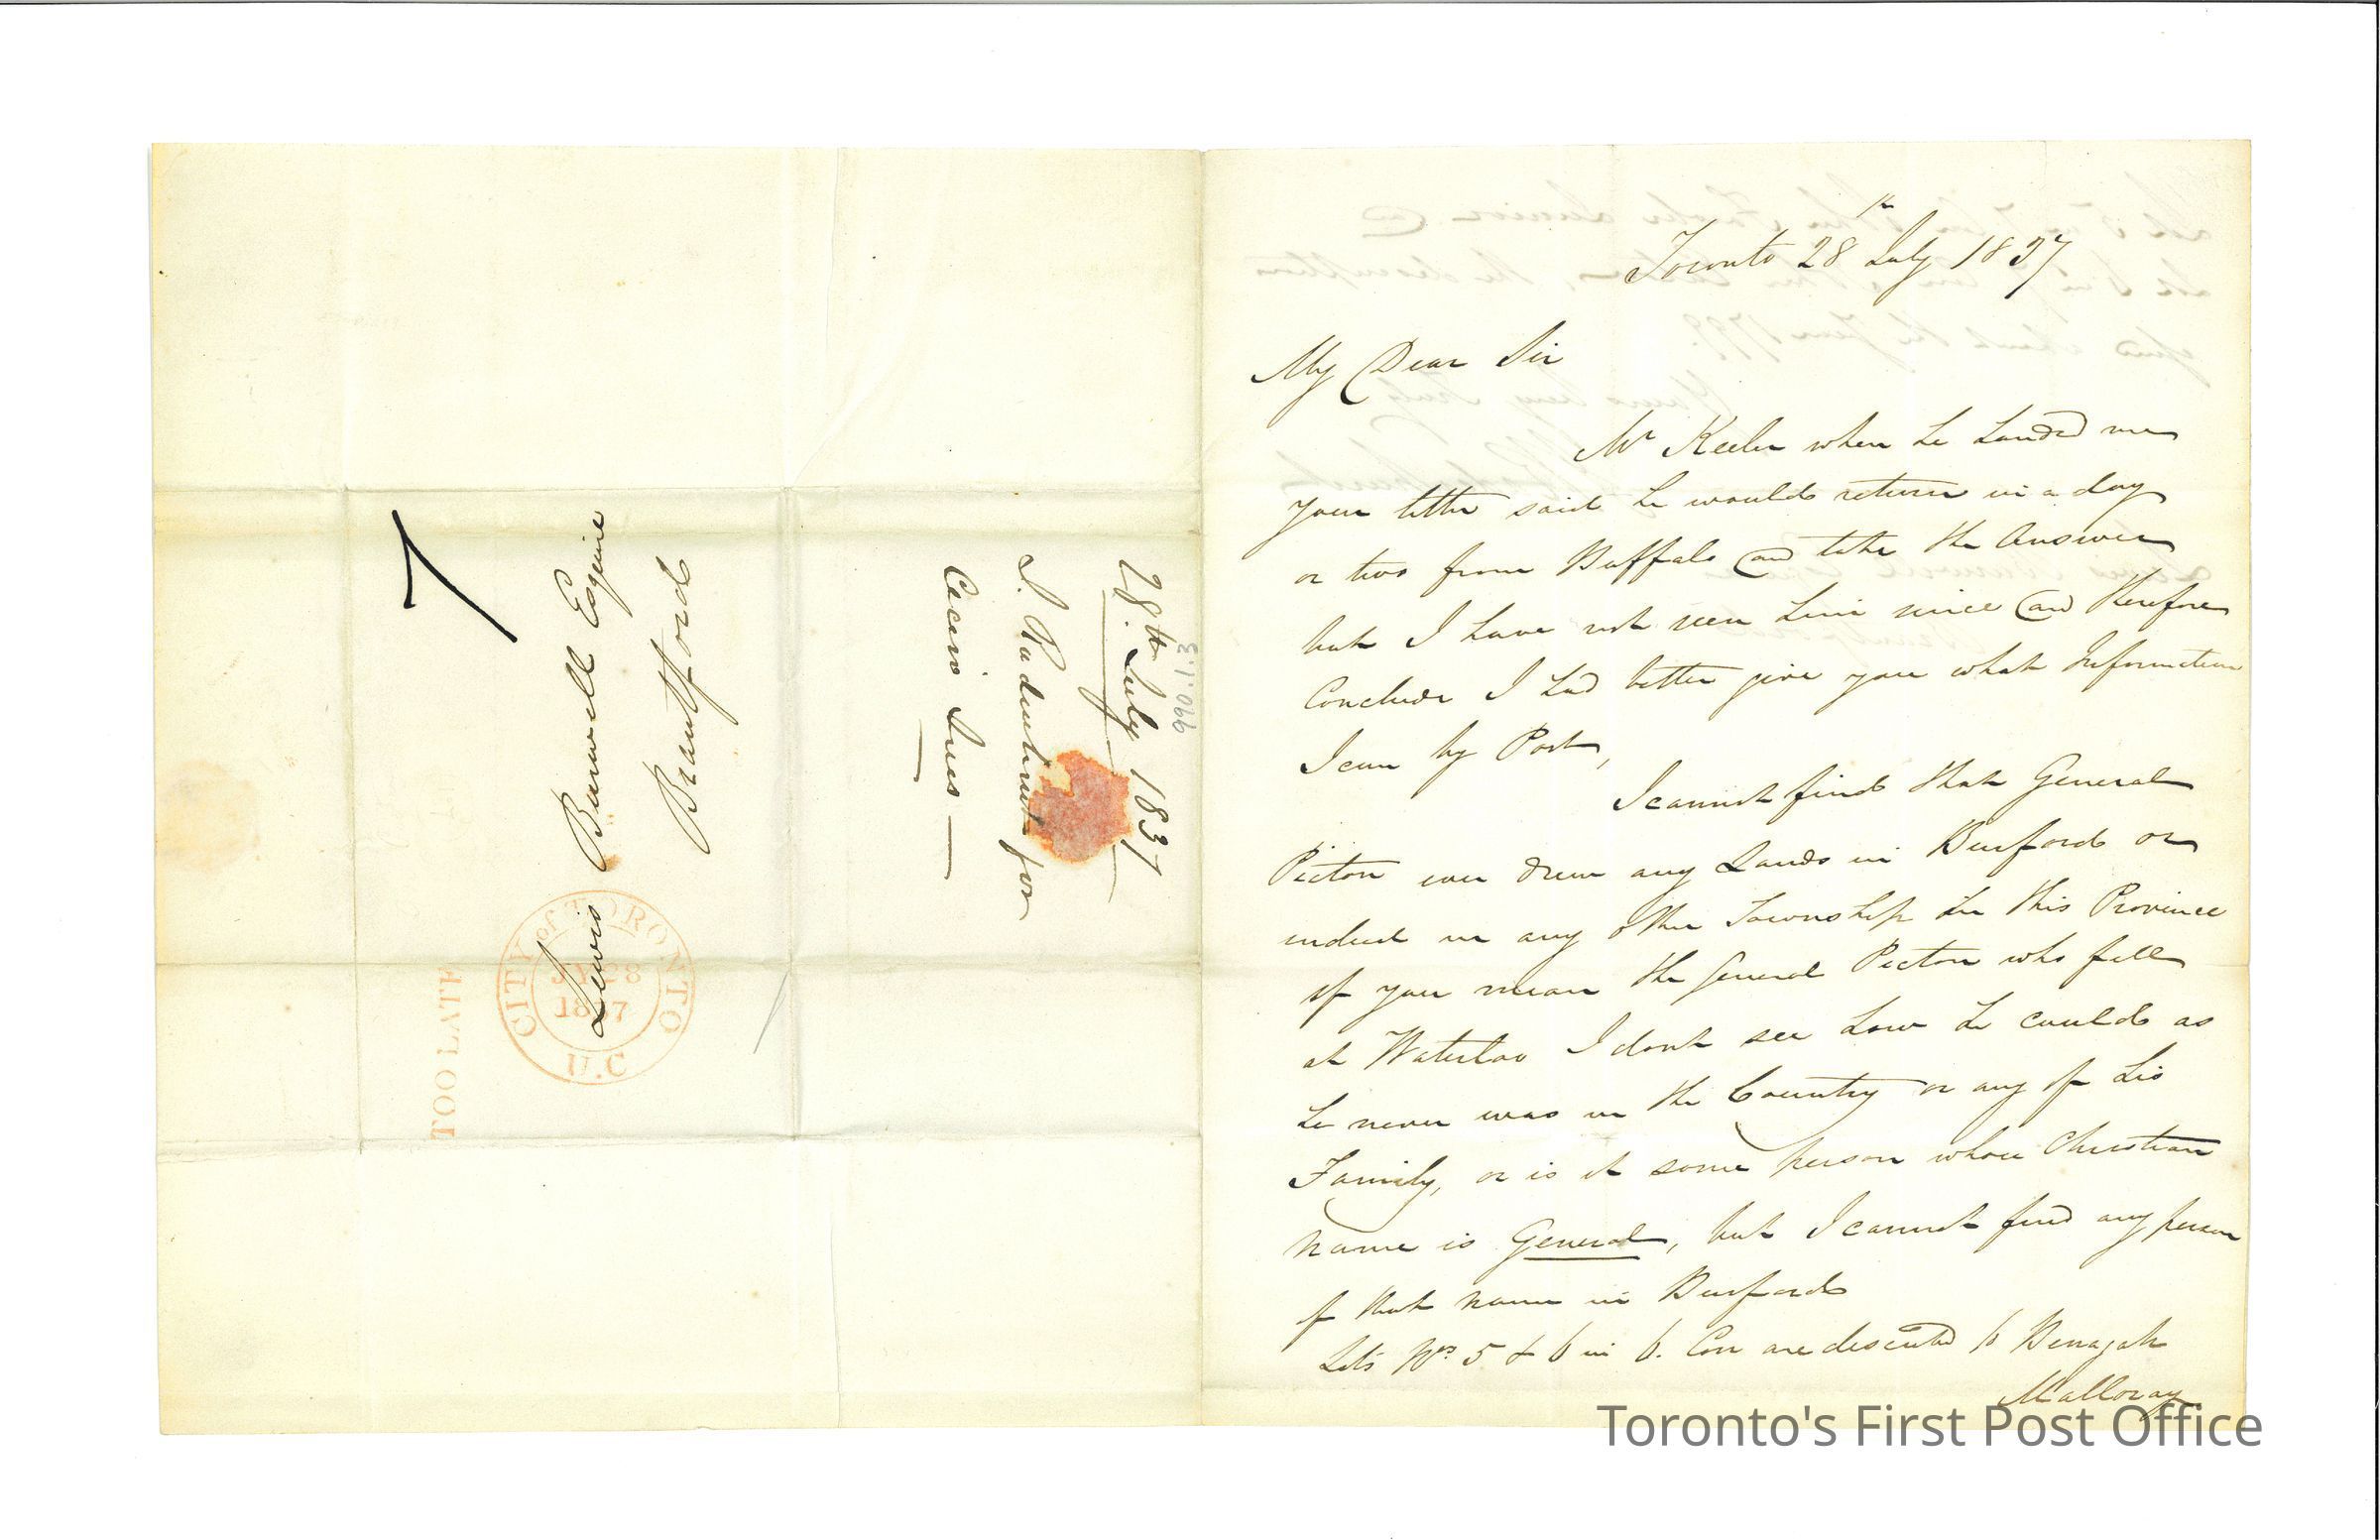 7
Lewis Burwell Esquire
Brantford
TOO LATE
CITY of TORONTO
JY 28
1837
U.C
28th July 1837
J. Radenhurst for
990.1.3
Toronto 28th July 1837
My Dear Sir
Mr Keeler when he handed me
your letter said he would return in a day
or two from Buffalo and take the Answer
but I have not seen him since and therefore
Conclude I had better give you what Information
I can by Post,
I cannot find that General
Picton ever drew any Lands in Burford or
indeed in any other Township in this Province
if you mean the General Picton who fell
at Waterloo I dont see how he could as
he never was in the Country or any of his
Family, or is it some person whose Christian
name is General, but I cannot find any person
of that name in Burford
Lots Nos 5 & 6 in 6. Con are described to Benajah
Malloray
Toronto's First Post Office